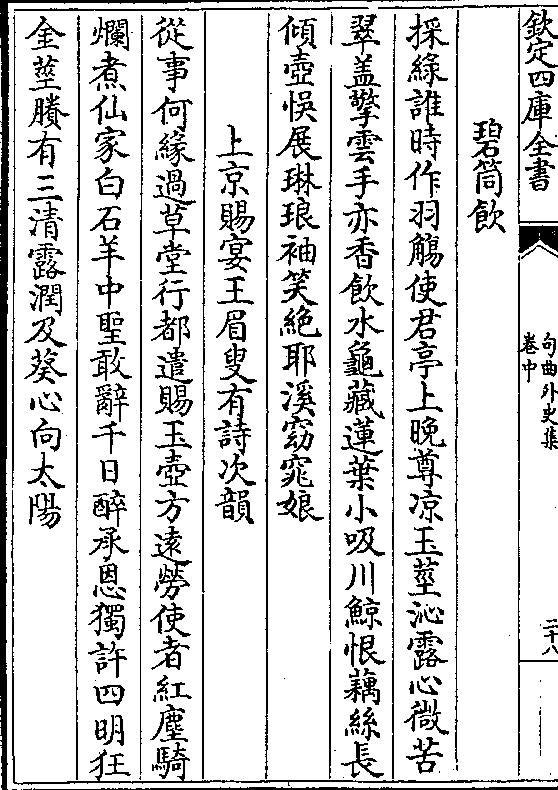 欽定四庫全書
句曲外史集
卷中
二十八
碧筒飲
採緑誰時作羽觴使君亭上晩尊凉玉莖沁露心微苦
翠盖擎雲手亦香飲水龜藏蓮葉小吸川鯨恨藕絲長
傾壺悞展琳琅袖笑絶耶溪窈窕娘
上京賜宴王眉叟有詩次韻
從事何緣過草堂行都遣賜玉壺方遠勞使者紅塵騎
爛煮仙家白石羊中聖敢辭千日醉承恩獨許四明狂
金莖賸有三清露潤及葵心向太陽